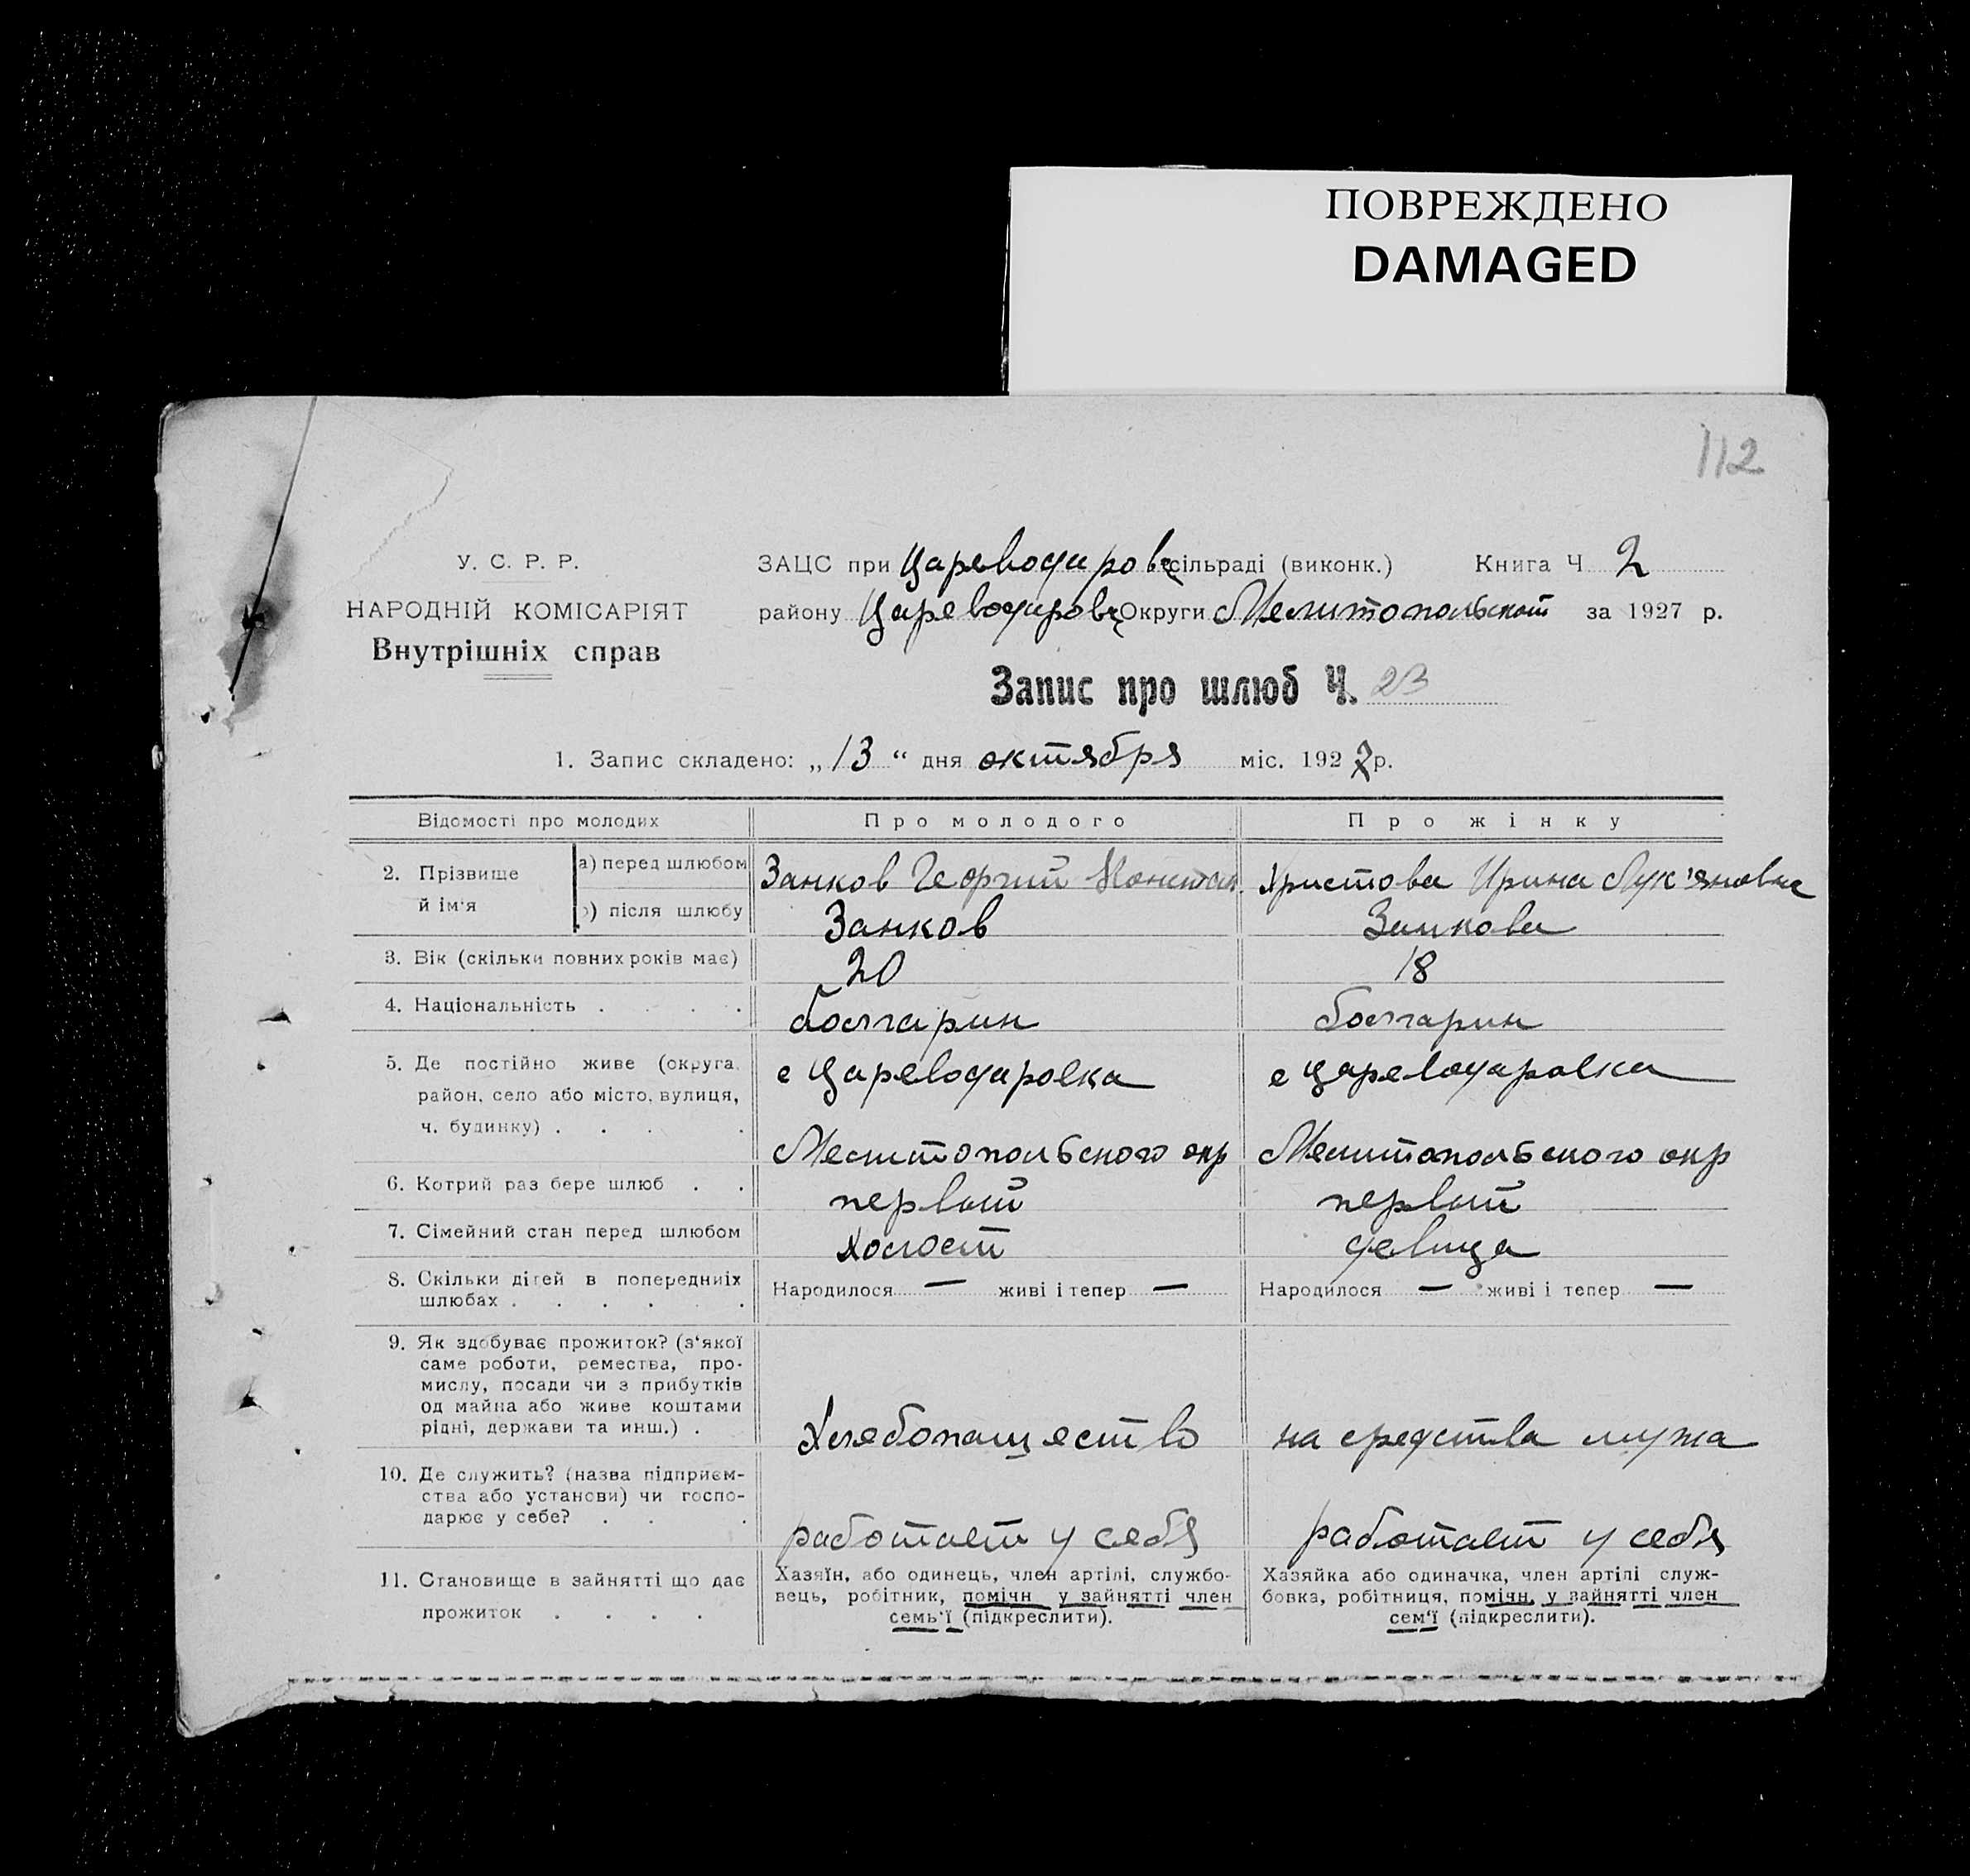 ПОВРЕЖДЕНО
DAMAGED
112
У. С. Р. Р.
НАРОДНІЙ КОМІСАРІЯТ
Внутрішніх справ
ЗАЦС при Цареводаровс сільраді (виконк.) Книга Ч 2
району Цареводаровс Округи Мелитопольской за 1927 р.
Запис про шлюб Ч. 23
1. Запис складено: „13“ дня октября міс. 1927 р.
Відомості про молодих
Про молодого
Про жінку
2. Прізвище й ім'я
а) перед шлюбом
Занков Георгий Констан.
Христова Ирина Лук'яновна
б) після шлюбу
Занков
Занкова
3. Вік (скільки повних років має)
20
18
4. Національність . . . .
болгарин
болгарин
5. Де постійно живе (округа,
район, село або місто, вулиця,
ч. будинку) . . . .
с Цареводаровка
Мелитопольского окр
с Цареводаровка
Мелитопольского окр
6. Котрий раз бере шлюб . .
первый
первый
7. Сімейний стан перед шлюбом
холост
девица
8. Скільки дітей в попередниіх
шлюбах . . . . . .
Народилося — живі і тепер —
Народилося — живі і тепер —
9. Як здобуває прожиток? (з'якої
саме роботи, ремества, про-
мислу, посади чи з прибутків
од майна або живе коштами
рідні, держави та инш.) .
Хлебопашество
на средства мужа
10. Де служить? (назва підприєм-
ства або установи) чи госпо-
дарює у себе? . . .
работает у себя
работает у себя
11. Становище в зайнятті що дає
прожиток . . . .
Хазяїн, або одинець, член артілі, службо-
вець, робітник, помічн у зайнятті член
семь'ї (підкреслити).
Хазяйка або одиначка, член артілі служ-
бовка, робітниця, помічн. у зайнятті член
сем'ї (підкреслити).